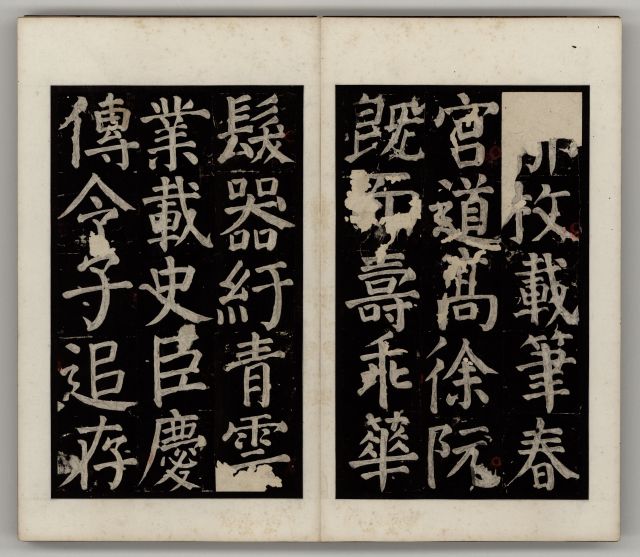 枚載筆春
宮道髙徐阮
既而壽乖華
髮器紆青雲
業載史臣慶
傳令子追存